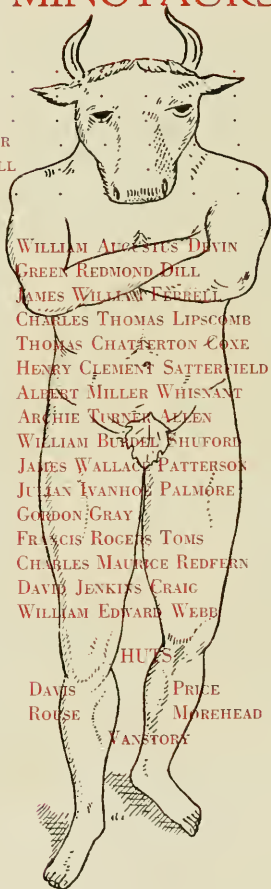 MINOTAURS
R
LL
WILLIAM AUGUSTUS DEVIN
GREEN REDMOND DILL
JAMES WILLIAM FERRELL
CHARLES THOMAS LIPSCOMB
THOMAS CHATTERTON COXE
HENRY CLEMENT SATTERFIELD
ALBERT MILLER WHISNANT
ARCHIE TURNER ALLEN
WILLIAM BURDEL SHUFORD
JAMES WALLACE PATTERSON
JULIAN IVANHOE PALMORE
GORDON GRAY
FRANCIS ROGERS TOMS
CHARLES MAURICE REDFERN
DAVID JENKINS CRAIG
WILLIAM EDWARD WEBB
HUTS
DAVIS PRICE
ROUSE MOREHEAD
VANSTORY